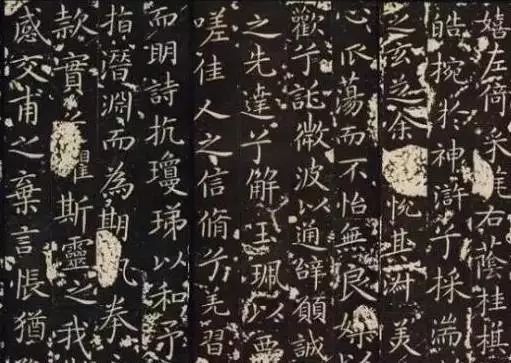 嬉左倚采旄右蔭桂旗
皓捥於神滸兮採湍
之玄芝余悅其淑美
心蕩而不怡無良媒
歡兮託微波以通辭願誠
之先達兮解玉珮以要
嗟佳人之信脩兮羌習
而明詩抗瓊珶以和予
指潛淵而為期拳
款實懼斯靈之我
感交甫之棄言悵猶